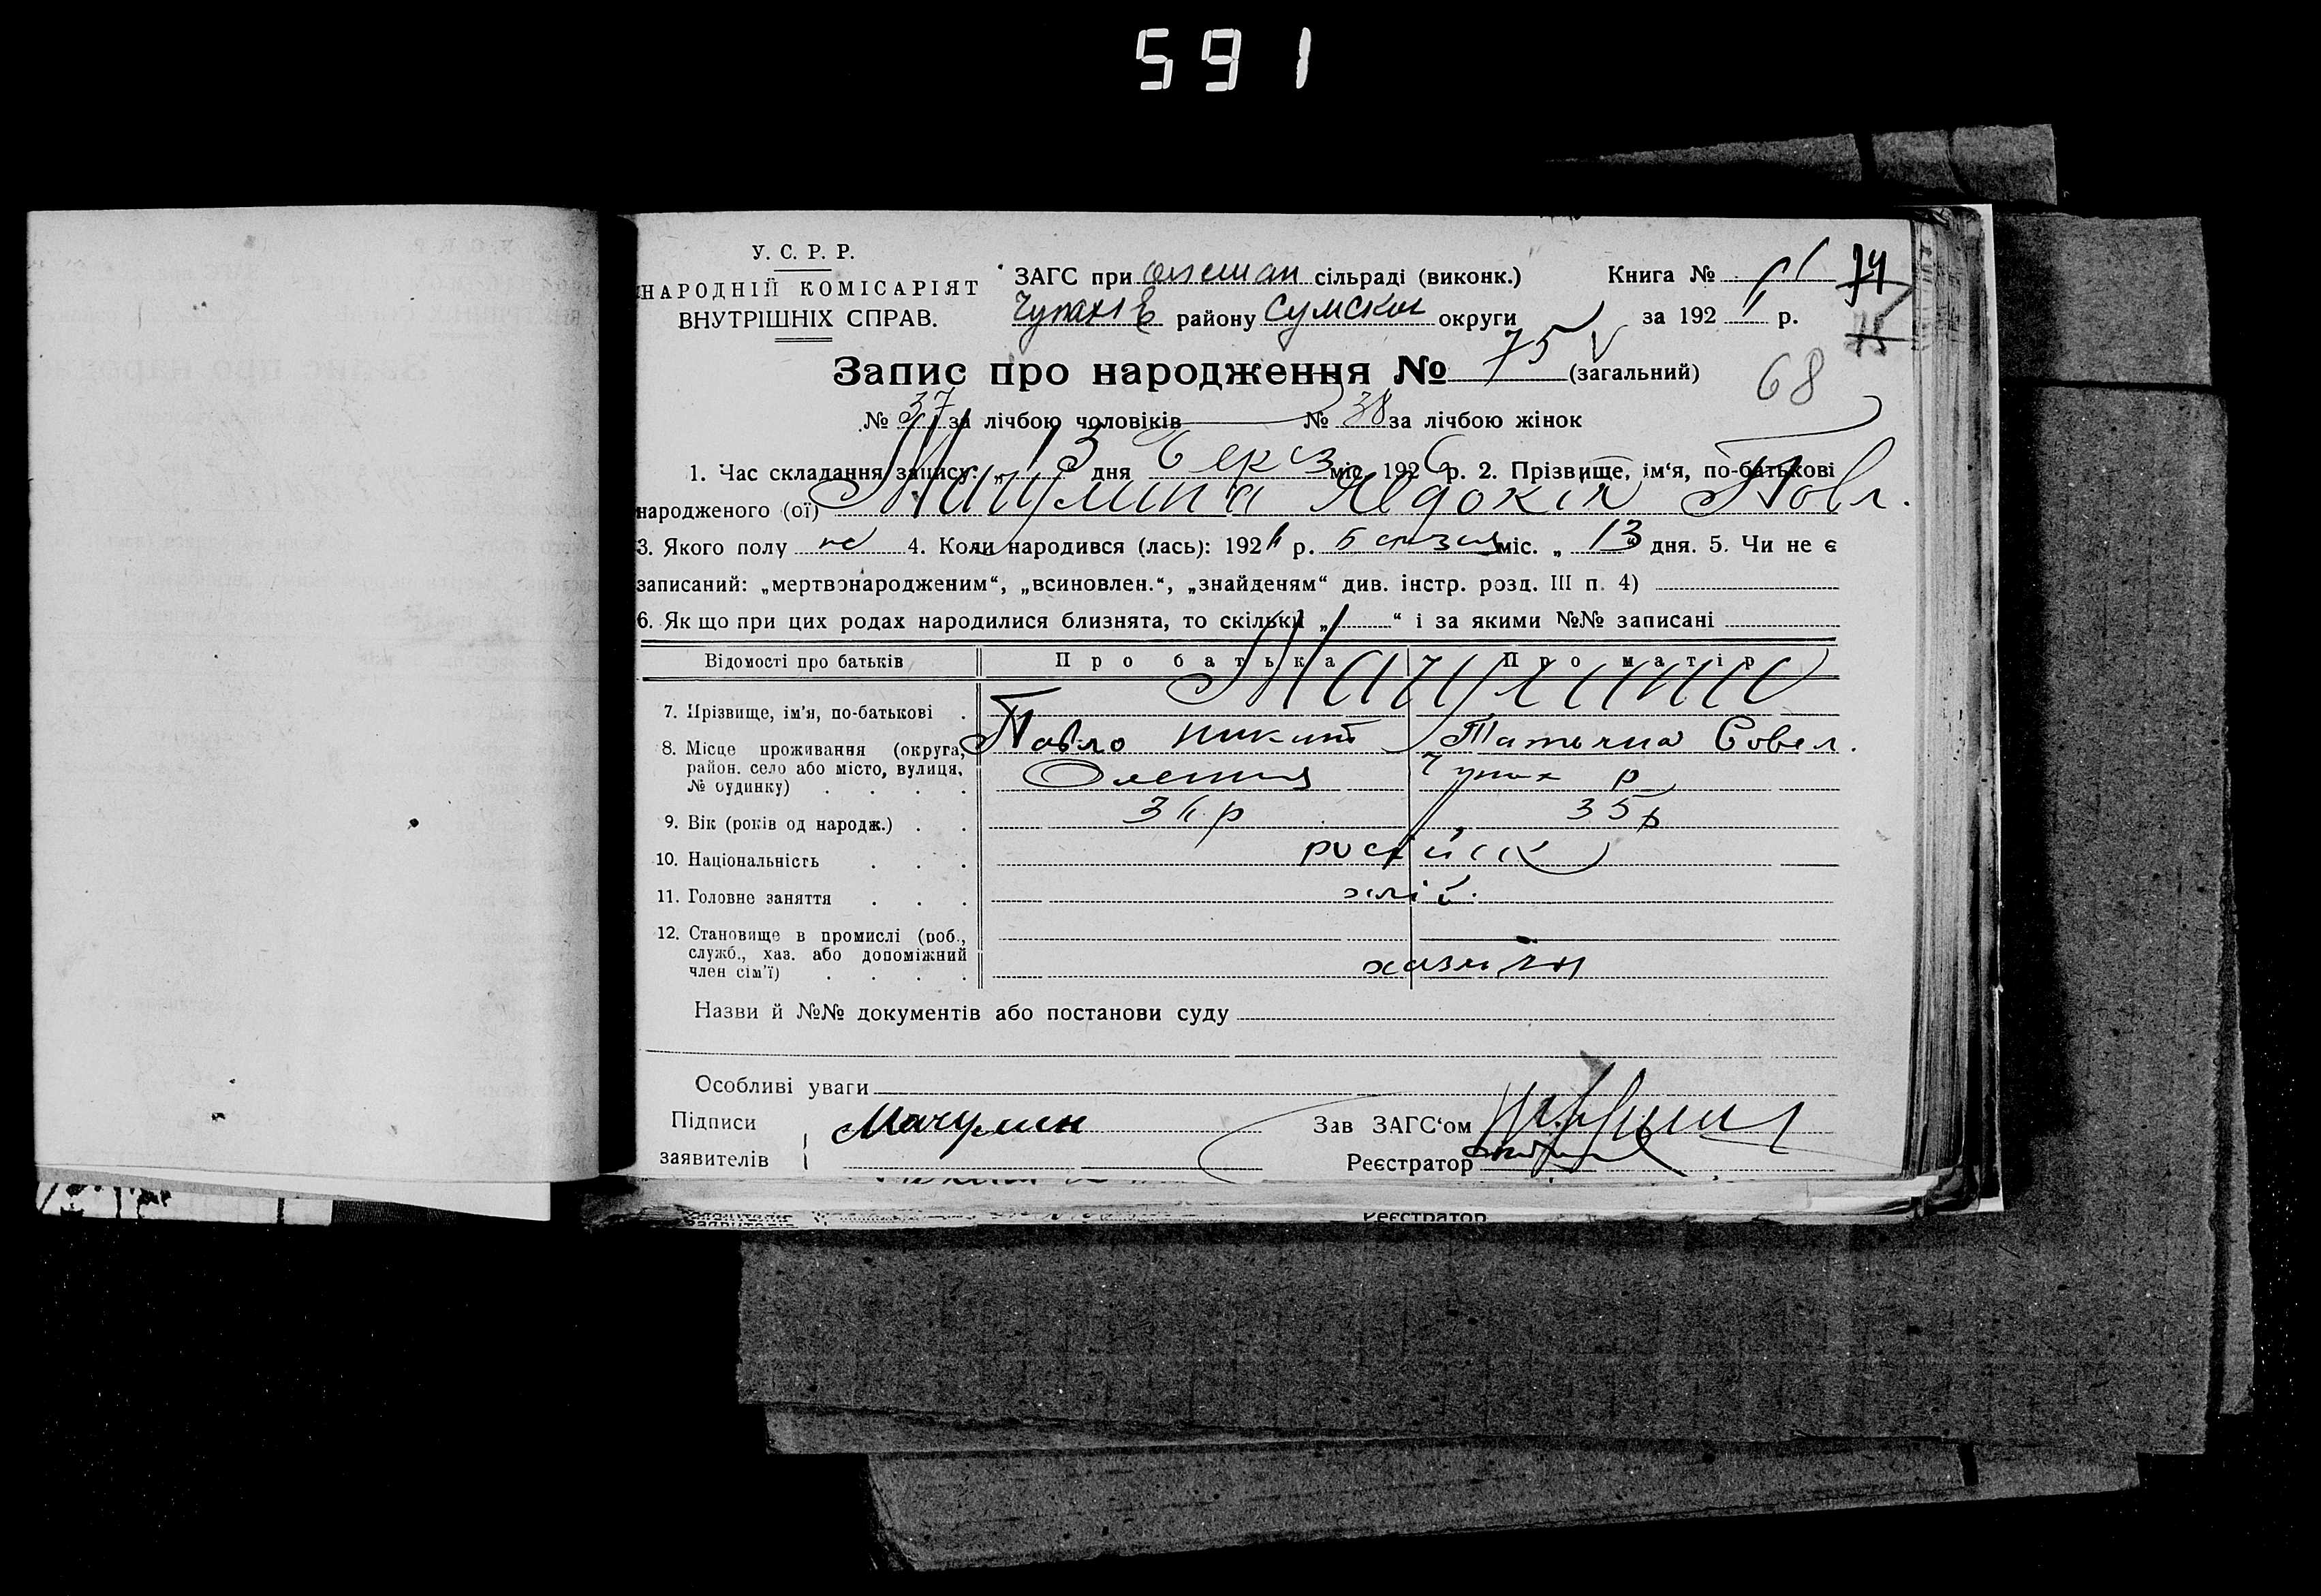 591
У. С. Р. Р.
НАРОДНІЙ КОМІСАРІЯТ
ВНУТРІШНІХ СПРАВ.
ЗАГС при сільраді (виконк.)
району Сумскои округи
Книга №
74
за 192 р.
75
68
Запис про народження № 75 (загальний)
№ 37 за лічбою чоловіків № 38 за лічбою жінок
1. Час складання запису: „ 13 “ дня Берез міс. 1926 р. 2. Прізвище, ім‘я, по-батькові
народженого (ої) Мачулина Явдокія Повл.
3. Якого полу 4. Коли народився (лась): 1926 р. березня міс. „ 13 “ дня. 5. Чи не є
записаний: „мертвонародженим“, „всиновлен.“, „знайденям“ див. інстр. розд. III п. 4)
6. Як що при цих родах народилися близнята, то скільки „ “ і за якими №№ записані
Відомості про батьків Про батька Про матір
7. Прізвище, ім‘я, по-батькові Мачулини
Повло Никит Татьяна Совел.
8. Місце проживання (округа,
район. село або місто, вулиця,
№ будинку) Олешня Чупах р
9. Вік (років од народж.) 36 р 35 р
10. Національність російск
11. Головне заняття хліб.
12. Становище в промислі (роб.,
служб., хаз. або допоміжний
член сім‘ї) хазяіни
Назви й №№ документів або постанови суду
Особливі уваги
Підписи Мачулин Зав ЗАГС‘ом
заявителів Реєстратор
Реєстратор